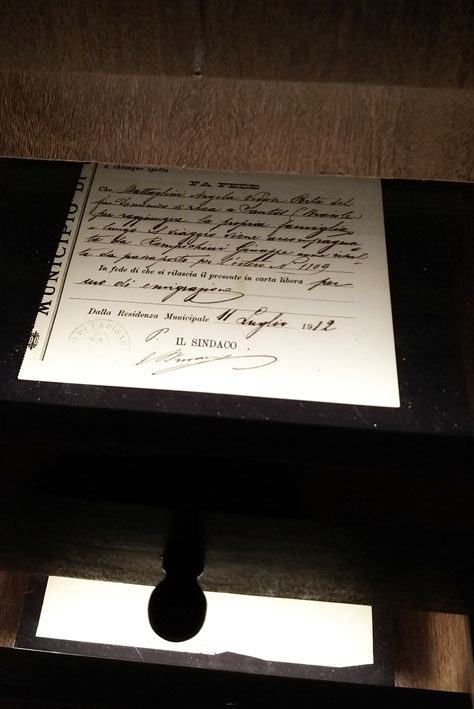 MUNICIPIO DI
a chiunque spetta
FA FEDE
Che Battaglini Angela Vedova Rita del
fu Domenico si reca a Santos (Brasile)
per raggiungere la propria famiglia
e lungo il viaggio viene accompagna
ta da Giuseppe come risul
ta da passaporto per l'estero N° 1109
In fede di che si rilascia il presente in carta libera per
uso di emigrazione
Dalla Residenza Municipale 11 Luglio 1912
P. IL SINDACO